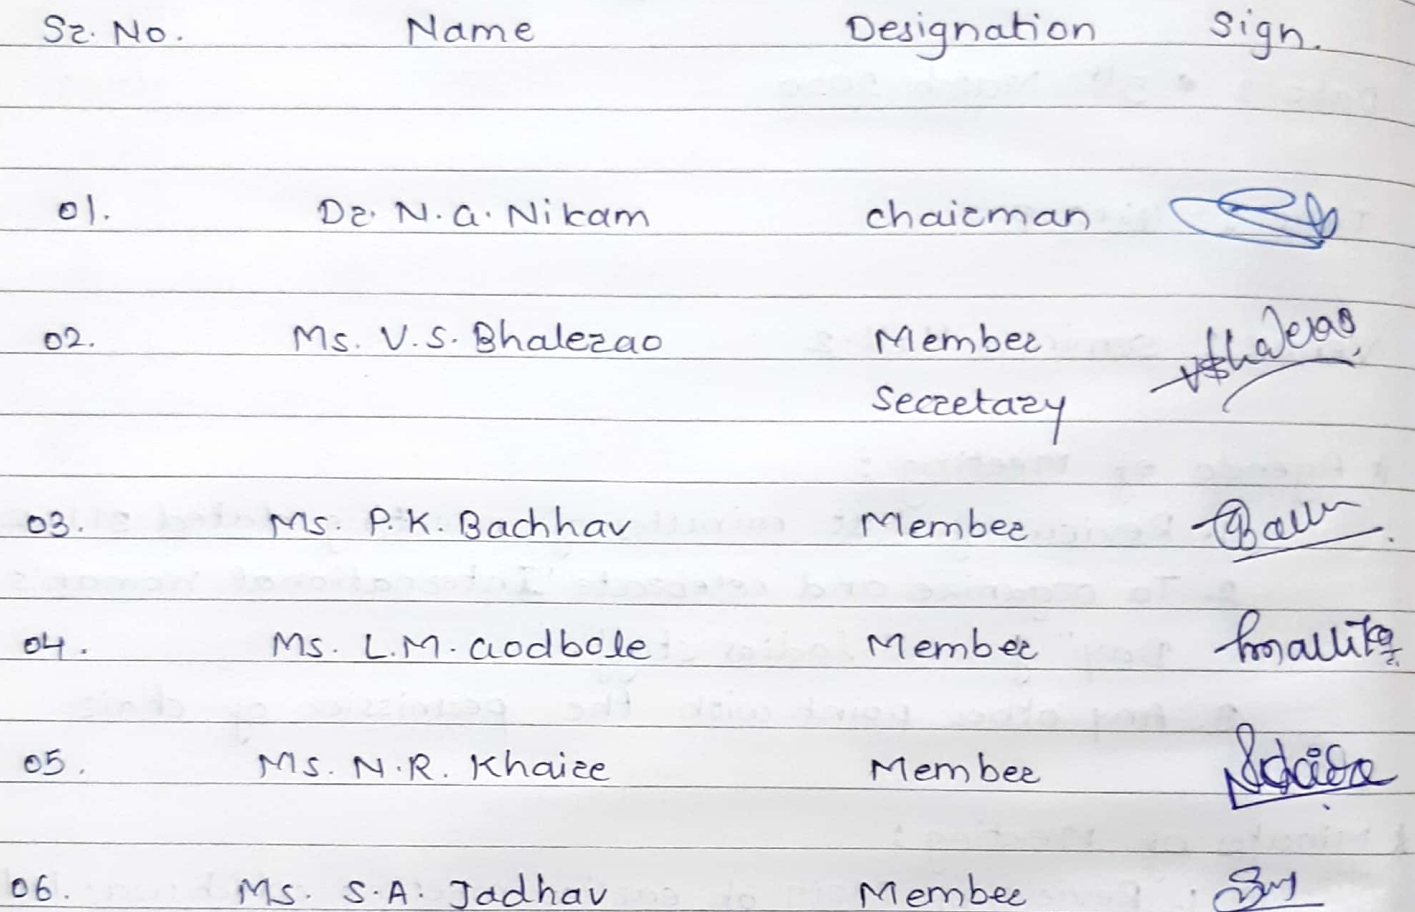 Sr. No. Name Designation Sign.
01. Dr. N. G. Nikam chairman
02. Ms. V.S. Bhalerao Member VSBhalerao
Secretary
03. Ms. P.K. Bachhav Member
04. Ms. L.M. Godbole Member
05. Ms. N.R. Khaire Member
06. Ms. S.A. Jadhav Member